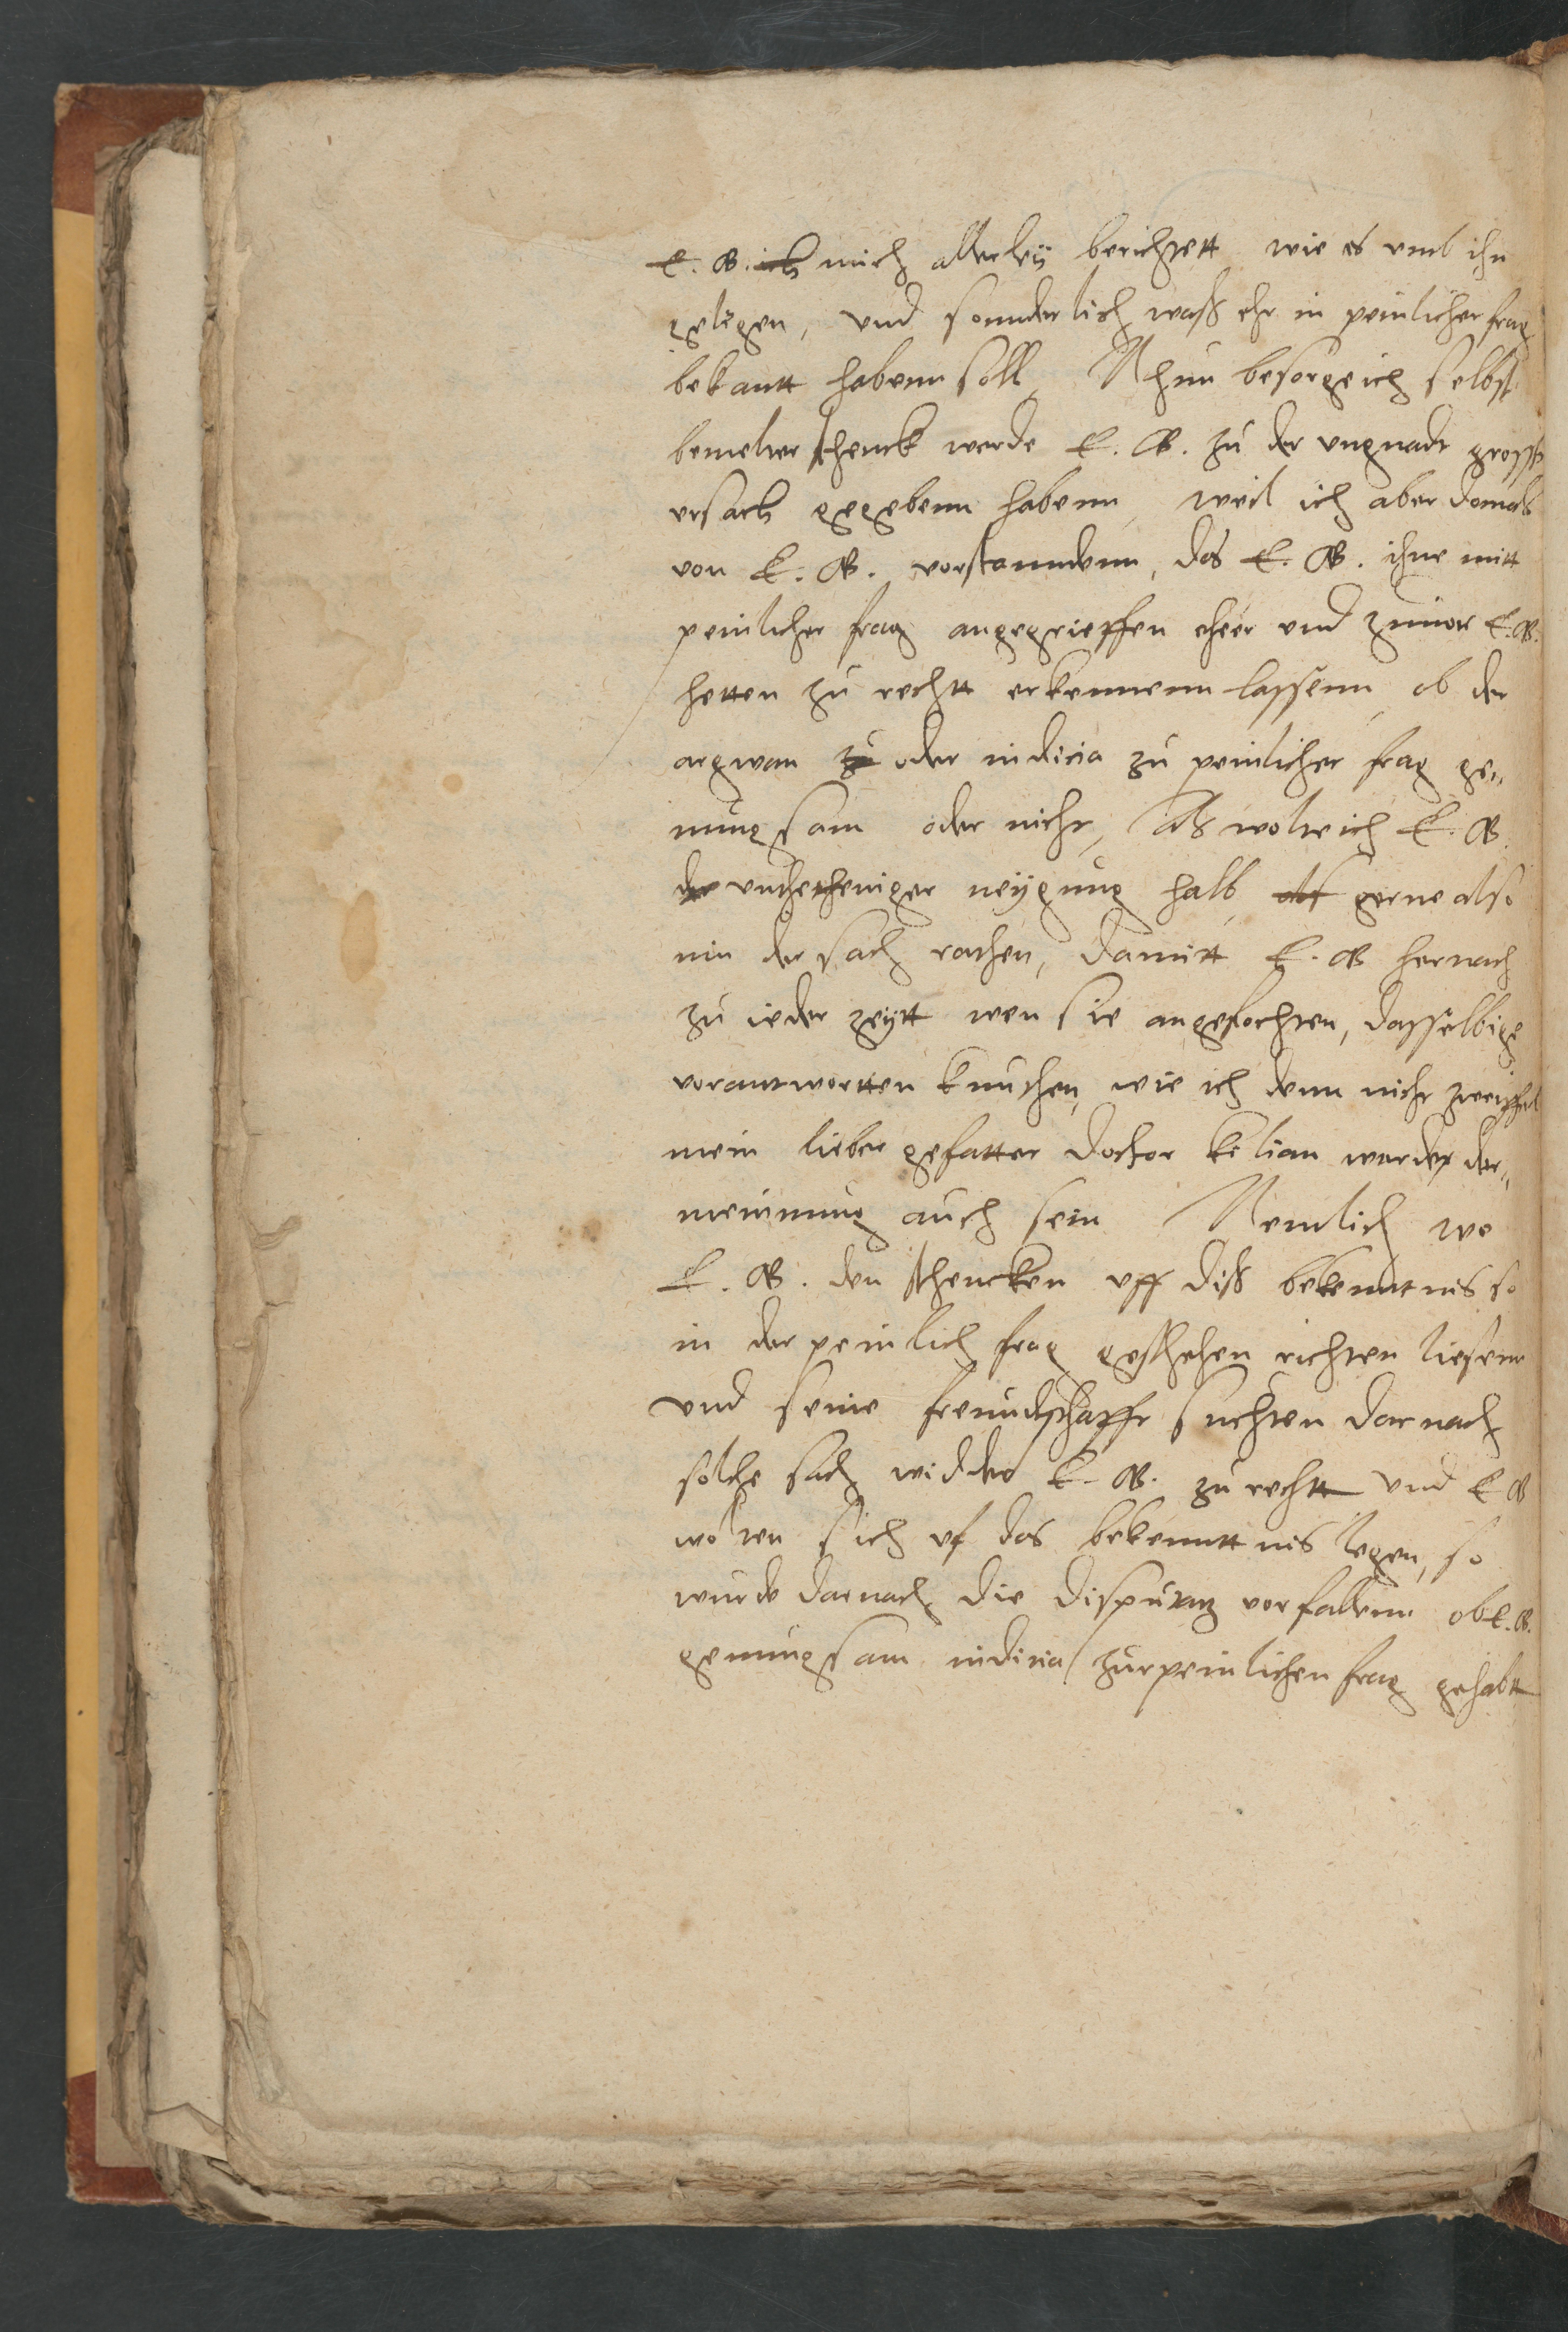 E. G. ich mich allerley berichtett wie es umb ihn
gelegen, und sonnderlich waß ehr in peinlicher frag
bekantt habenn soll, Nhun besorge ich selbst
bemelter schenck werde E. G. zu der ungnadt grosse
ursach gegebenn habenn, weil ich aber domals
von E. G. vorstanndenn, das E. G. ihne mitt
peinlicher frag angegrieffen eheer und zuuor E. G.
hetten zu rechtt erkennenn lassenn, ob der
argwan zu oder indicia zu peinlicher frag ge„
nungsam oder nicht, Als wolte ich E. G.
der untertheniger neygung halb als gerne also
inn der sach rathen, damitt E. G hernach
zu ieder zeytt wen sie angefochten, dasselbige
vorantwortten knuthen, wie ich denn nicht zweiffel
mein lieber gefatter doctor kilian werdt der„
meinnung auch sein Nemlich wo
E. G. den schencken uff diß bekenntnis so
in der peinlich frag geschehen richten liesenn
und seine freundschafft suchten darnach
solche sach widder E. G. zu rechtt und E G
wolten sich uf das bekenntt nis legen, so
wurde darnach die disputatz vorfallenn ob E. G.
genungsam indicia zur peinlichen frag gehabtt